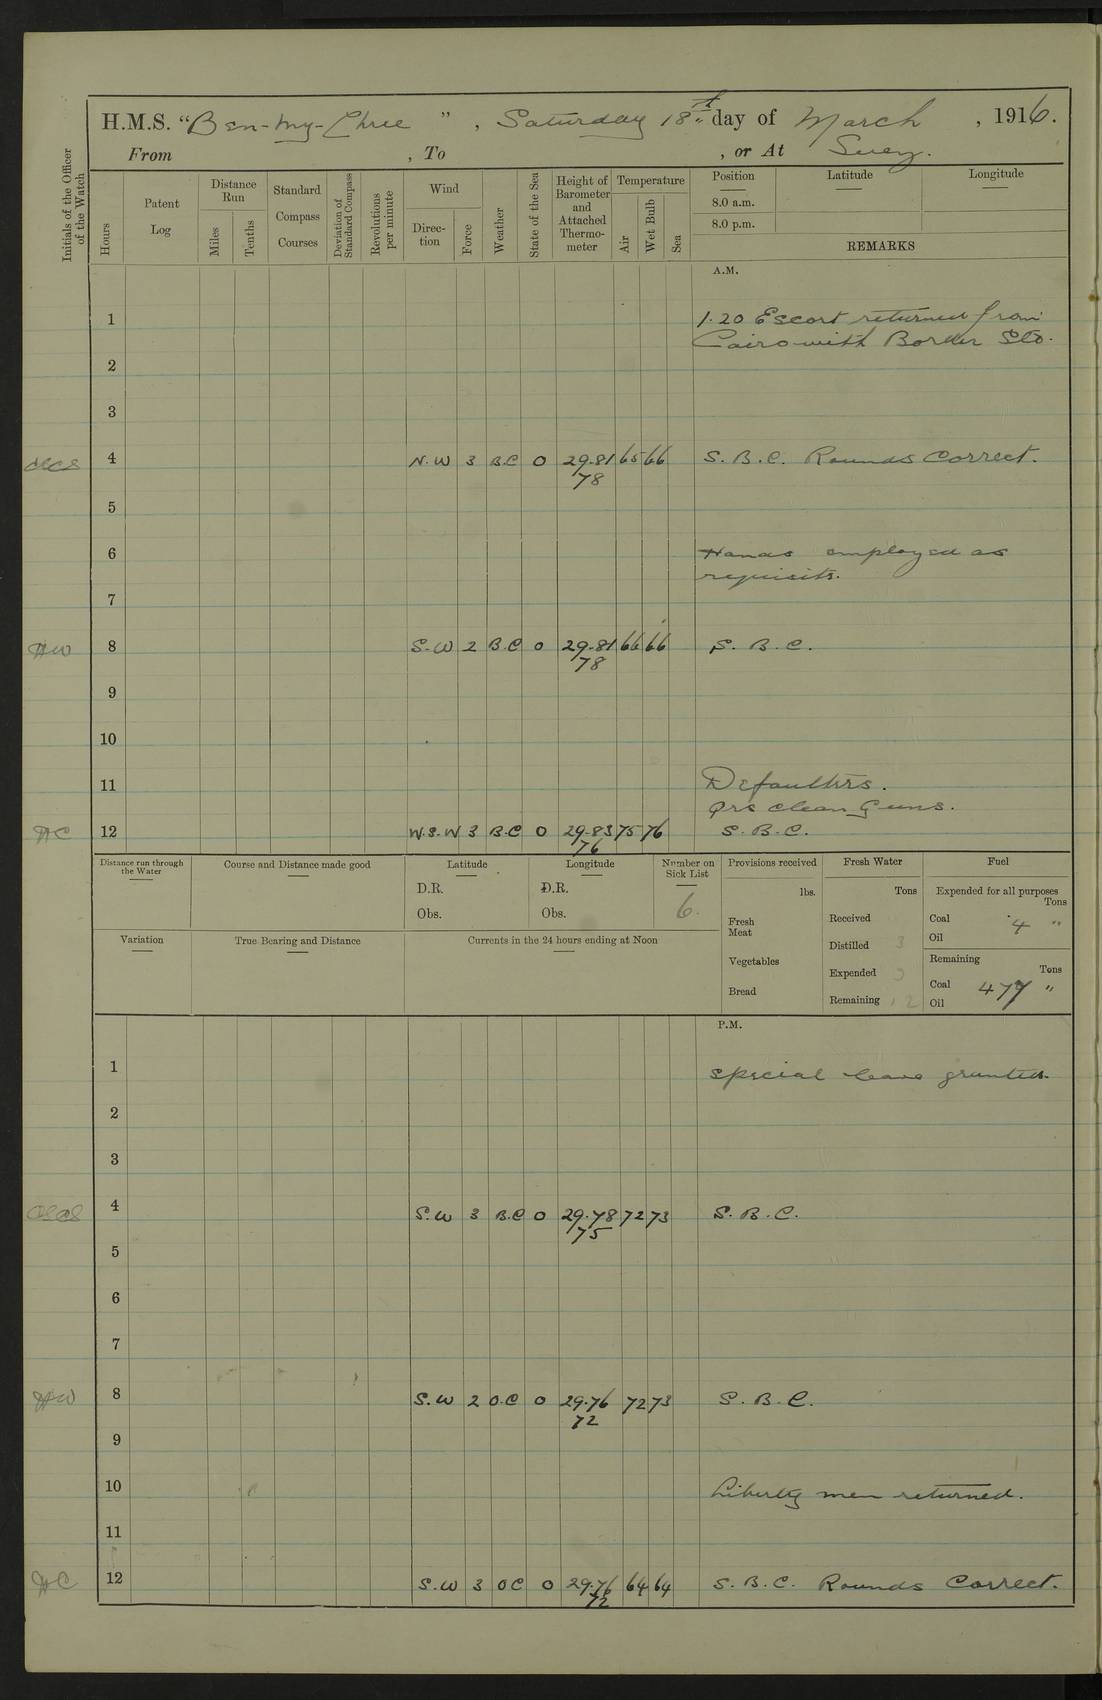 H.M.S. "Ben-my-Chree", Saturday 18th day of March, 1916.
From , To , or At Suez.
Initials of the Officer of the Watch
Hours
Patent Log
Distance Run
Miles
Tenths
Standard Compass Courses
Deviation of Standard Compass
Revolutions per minute
Wind
Direction
Force
Weather
State of the Sea
Height of Barometer and Attached Thermometer
Temperature
Air
Wet Bulb
Sea
Position
Latitude
Longitude
8.0 a.m.
8.0 p.m.
REMARKS
A.M.
1 1.20 Escort returned from
Cairo with Border Sto.
2
3
4 N.W 3 B.C 0 29.81 65 66 S.B.C. Rounds Correct.
78
5
6 Hands employed as
requisite.
7
HW 8 S.W 2 B.C 0 29.81 66 66 S.B.C.
78
9
10
11 Defaulters.
Qrs clean Guns.
HC 12 W.S.W 3 B.C 0 29.83 75 76 S.B.C.
76
Distance run through the Water
Course and Distance made good
Latitude
D.R.
Obs.
Longitude
D.R.
Obs.
Number on Sick List
6.
Provisions received
lbs.
Fresh Meat
Vegetables
Bread
Fresh Water
Tons
Received
Distilled 3
Expended
Remaining
Fuel
Expended for all purposes
Tons
Coal 4 "
Oil
Remaining
Tons
Coal 477 "
Oil
Variation
True Bearing and Distance
Currents in the 24 hours ending at Noon
P.M.
1 Special leave granted.
2
3
4 S.W 3 B.C 0 29.78 72 73 S.B.C.
75
5
6
7
HW 8 S.W 2 O.C 0 29.76 72 73 S.B.C.
72
9
10 Liberty men returned.
11
HC 12 S.W 3 O C 0 29.76 64 64 S.B.C. Rounds Correct.
72